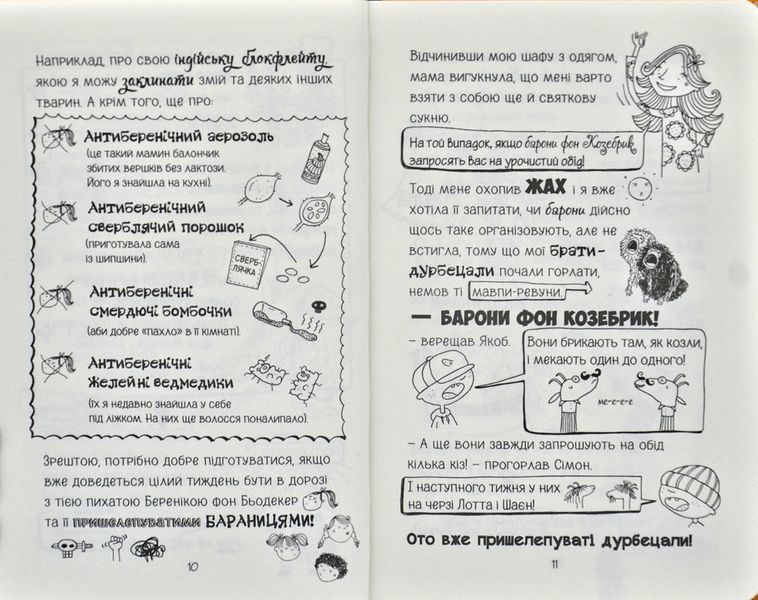 Наприклад, про свою індійську блокфлейту,
якою я можу заклинати змій та деяких інших
тварин. А крім того, ще про:
Антиберенічний аерозоль
(це такий мамин балончик
збитих вершків без лактози.
Його я знайшла на кухні).
Антиберенічний
сверблячий порошок
(приготувала сама
із шипшини).
СВЕРБ-
ЛЯЧКА
Антиберенічні
смердючі бомбочки
(аби добре «пахло» в її кімнаті).
Антиберенічні
желейні ведмедики
(їх я недавно знайшла у себе
під ліжком. На них ще волосся поналипало).
Зрештою, потрібно добре підготуватися, якщо
вже доведеться цілий тиждень бути в дорозі
з тією пихатою Беренікою фон Бьодекер
та її пришелепуватими БАРАНИЦЯМИ!
10
Відчинивши мою шафу з одягом,
мама вигукнула, що мені варто
взяти з собою ще й святкову
сукню.
На той випадок, якщо барони фон Козебрик
запросять Вас на урочистий обід!
Тоді мене охопив ЖАХ і я вже
хотіла її запитати, чи барони дійсно
щось таке організовують, але не
встигла, тому що мої брати-
дурбецали почали горлати,
немов ті мавпи-ревуни.
— БАРОНИ ФОН КОЗЕБРИК!
– верещав Якоб.
Вони брикають там, як козли,
і мекають один до одного!
ме-е-е-е
– А ще вони завжди запрошують на обід
кілька кіз! – прогорлав Сімон.
І наступного тижня у них
на черзі Лотта і Шаєн!
Ото вже пришелепуваті дурбецали!
11